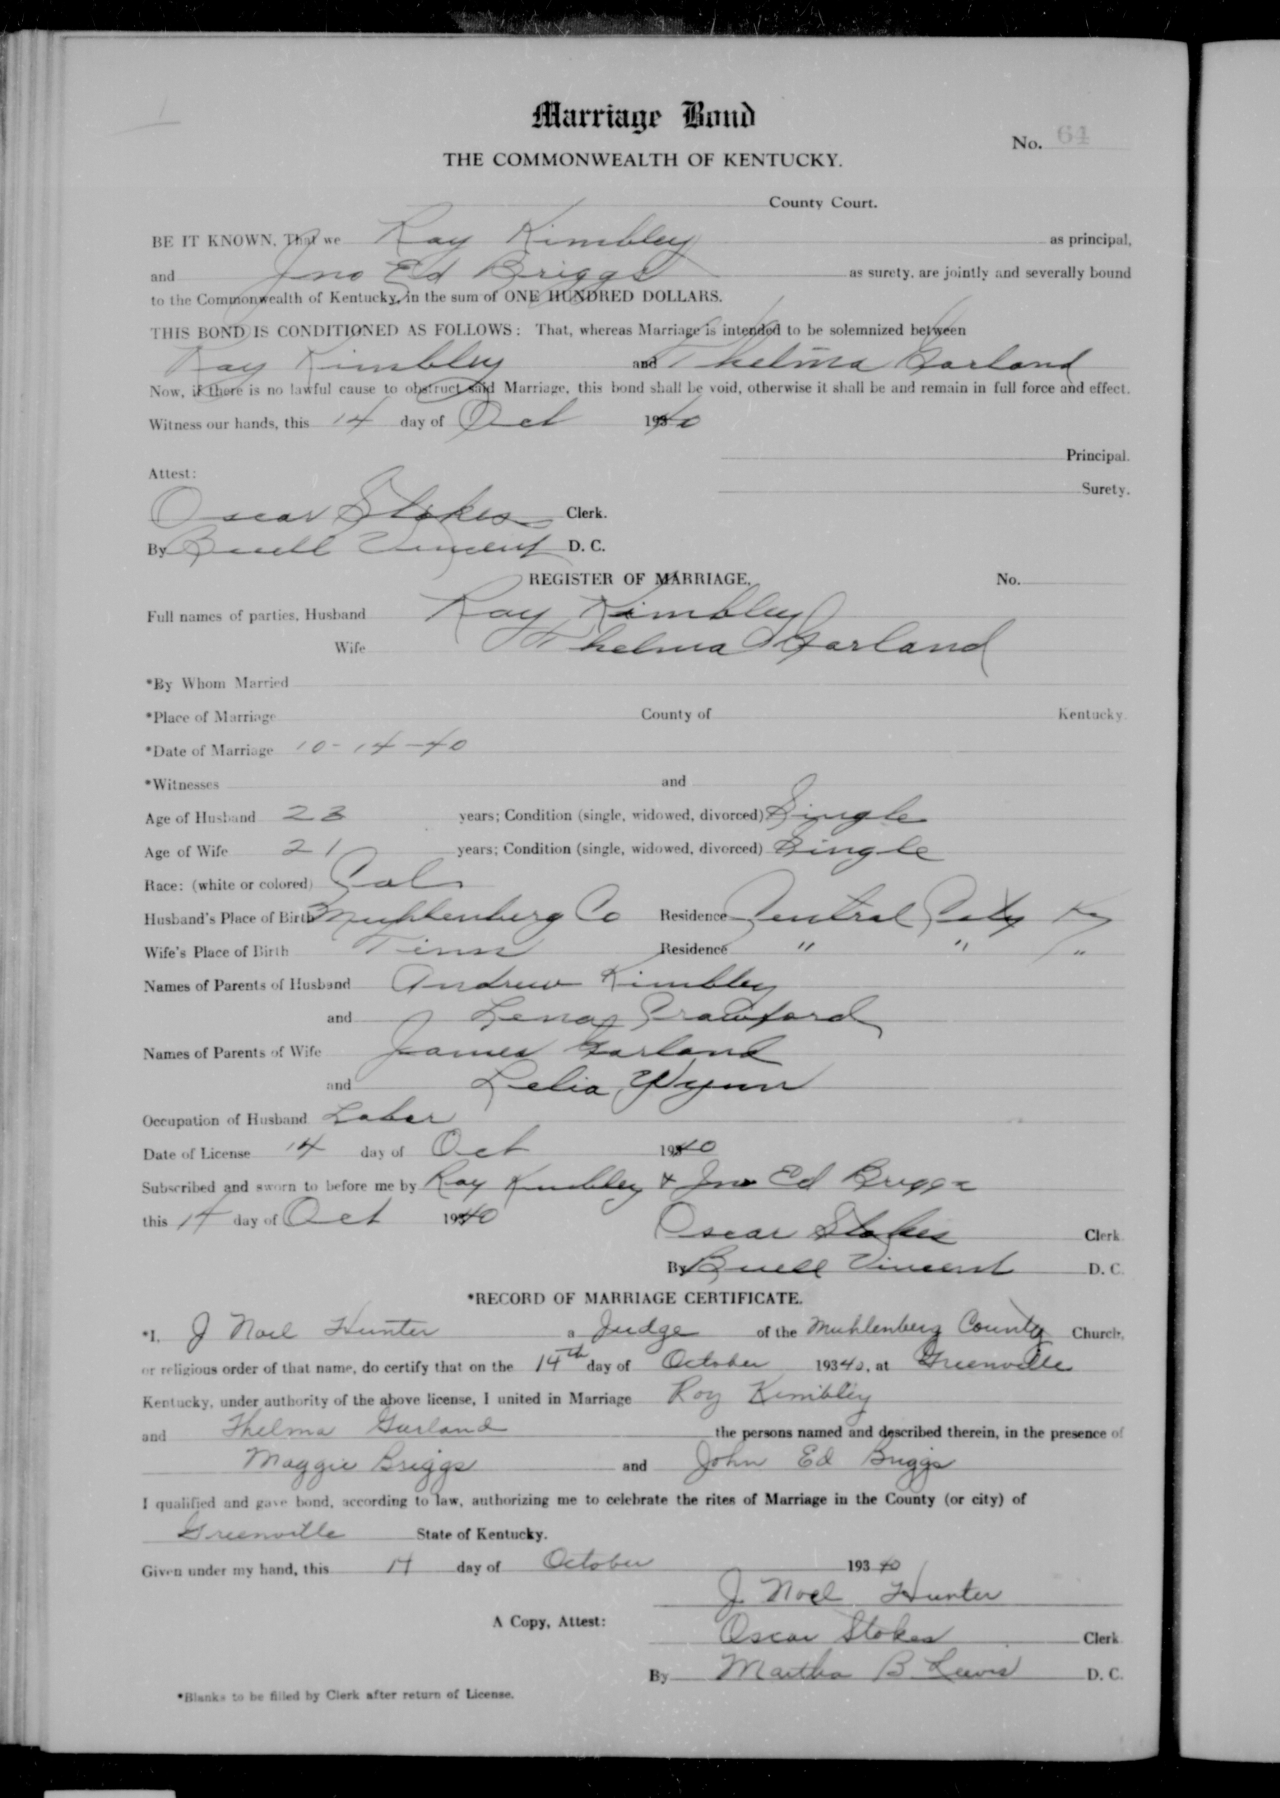 Marriage Bond
No. 64
THE COMMONWEALTH OF KENTUCKY.
County Court.
BE IT KNOWN, That we Roy Kimbley as principal,
and Jno Ed Briggs as surety, are jointly and severally bound
to the Commonwealth of Kentucky, in the sum of ONE HUNDRED DOLLARS.
THIS BOND IS CONDITIONED AS FOLLOWS: That, whereas Marriage is intended to be solemnized between
Roy Kimbley and Thelma Garland
Now, if there is no lawful cause to obstruct said Marriage, this bond shall be void, otherwise it shall be and remain in full force and effect.
Witness our hands, this 14 day of Oct 1940
Principal.
Attest:
Surety.
Oscar Stokes Clerk.
By Buell Vincent D. C.
REGISTER OF MARRIAGE. No.
Full names of parties, Husband Roy Kimbley
Wife Thelma Garland
*By Whom Married
*Place of Marriage County of Kentucky.
*Date of Marriage 10-14-40
*Witnesses and
Age of Husband 23 years; Condition (single, widowed, divorced) Single
Age of Wife 21 years; Condition (single, widowed, divorced) Single
Race: (white or colored) Col
Husband's Place of Birth Muhlenberg Co Residence Central City Ky
Wife's Place of Birth Tenn Residence " " "
Names of Parents of Husband Andrew Kimbley
and Lena Crawford
Names of Parents of Wife James Garland
and Lelia Wynn
Occupation of Husband Labor
Date of License 14 day of Oct 1940
Subscribed and sworn to before me by Roy Kimbley & Jno Ed Briggs
this 14 day of Oct 1940
Oscar Stokes Clerk
By Buell Vincent D. C.
*RECORD OF MARRIAGE CERTIFICATE.
*I, J Noel Hunter a Judge of the Muhlenberg County Church,
or religious order of that name, do certify that on the 14th day of October 19340, at Greenville
Kentucky, under authority of the above license, I united in Marriage Roy Kimbley
and Thelma Garland the persons named and described therein, in the presence of
Maggie Briggs and John Ed Briggs
I qualified and gave bond, according to law, authorizing me to celebrate the rites of Marriage in the County (or city) of
Greenville State of Kentucky.
Given under my hand, this 14 day of October 19340
J. Noel Hunter
A Copy, Attest:
Oscar Stokes Clerk
By Martha B. Lewis D. C.
*Blanks to be filled by Clerk after return of License.